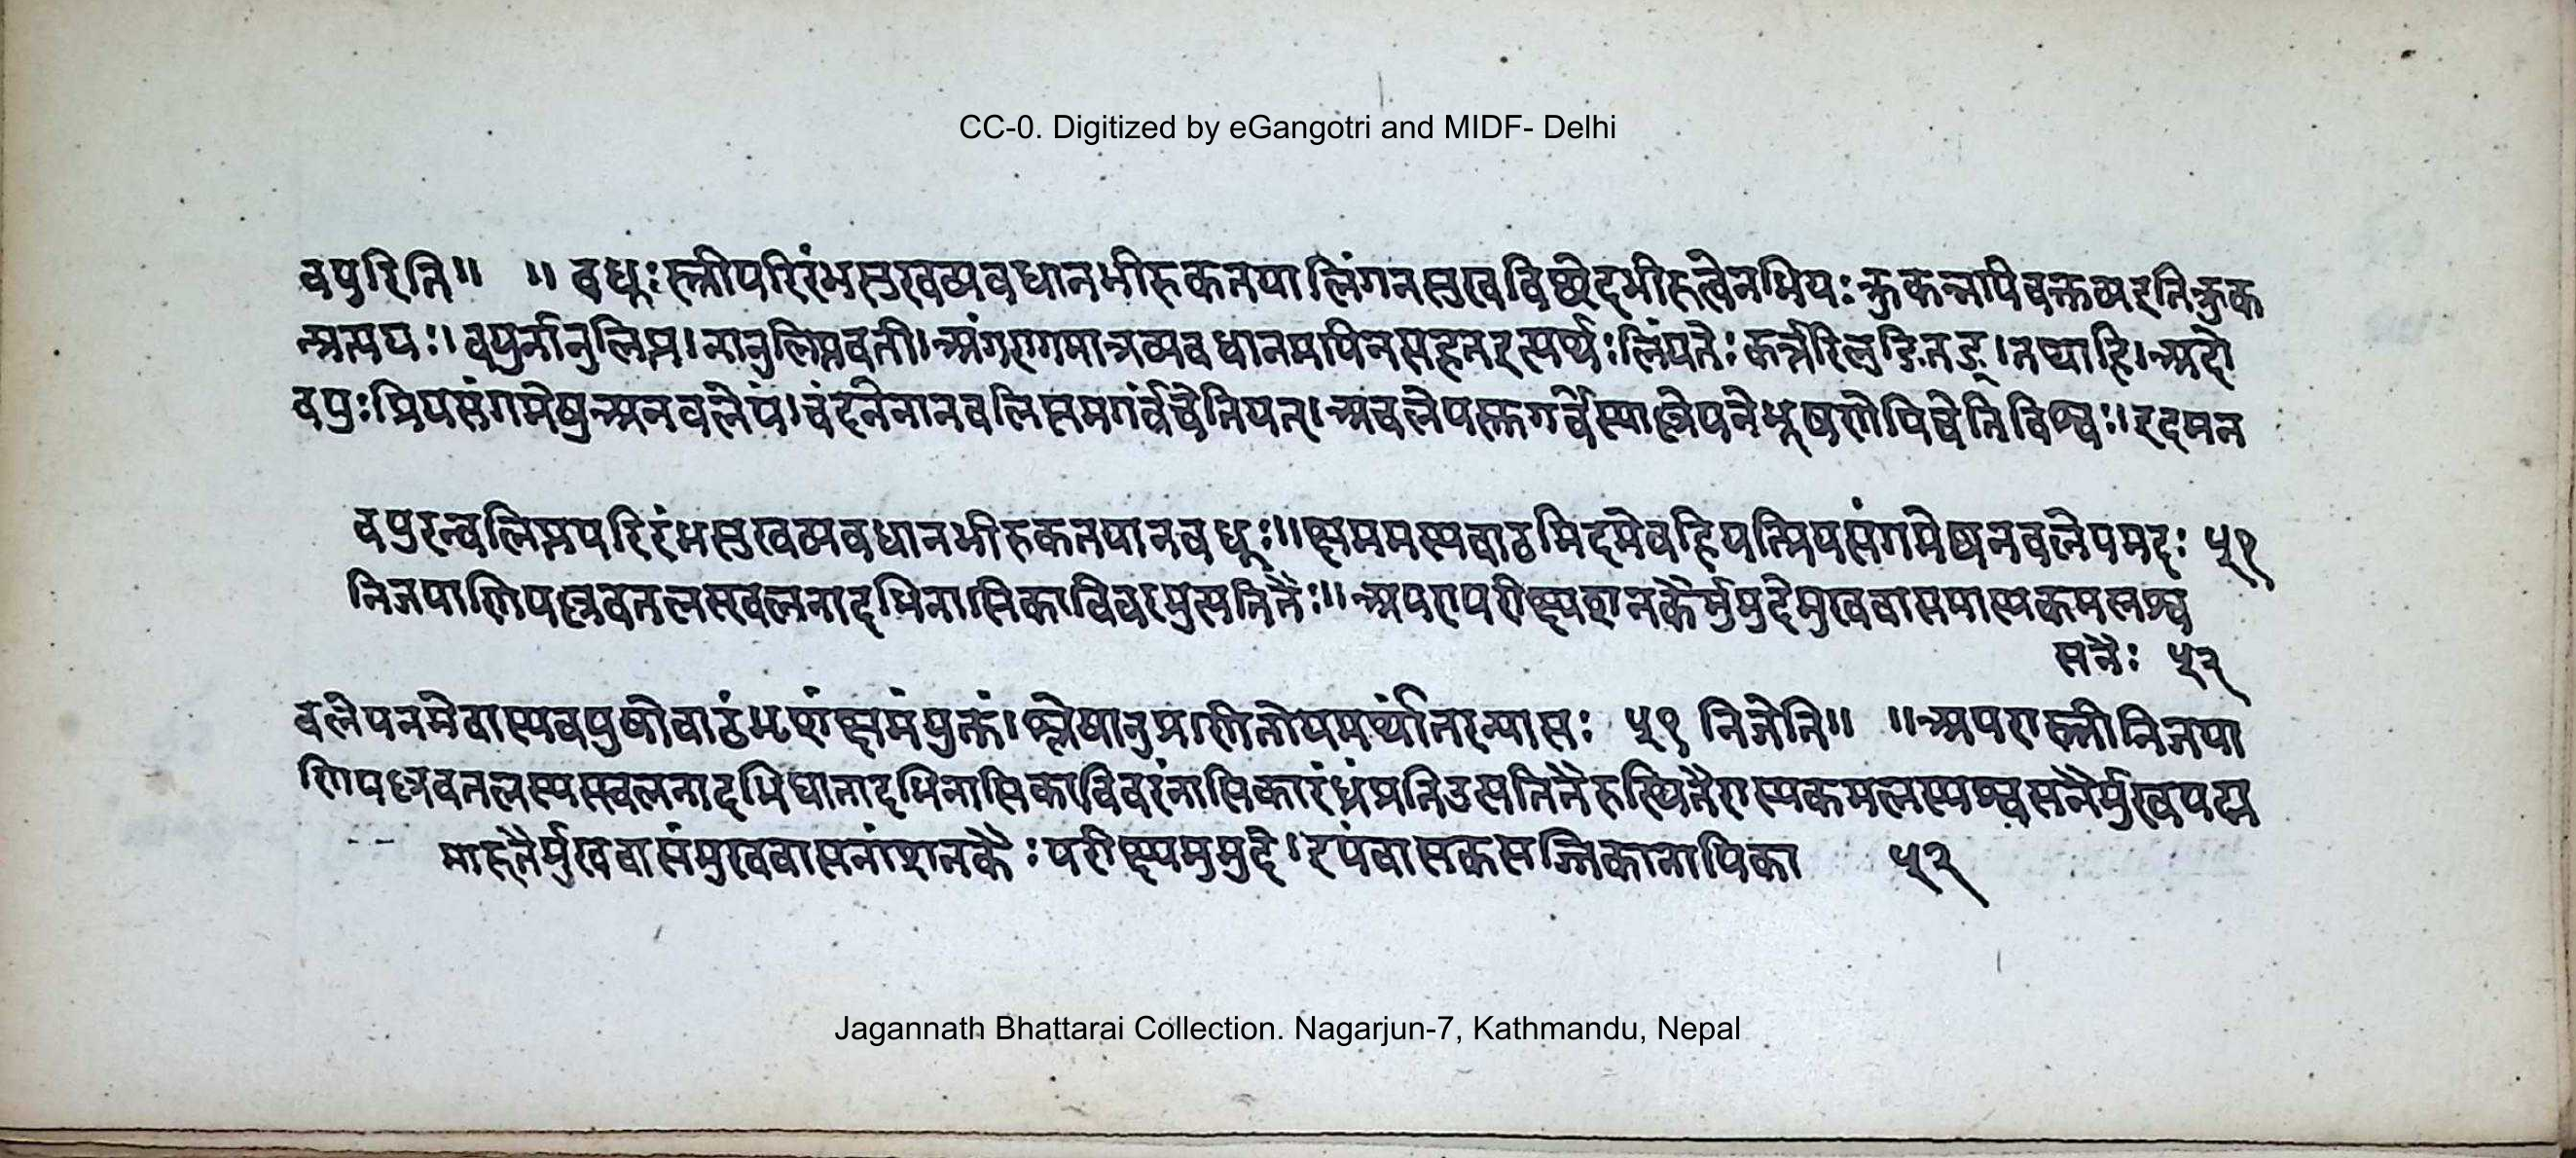 CC-0. Digitized by eGangotri and MIDF- Delhi
वपुरिति॥ ॥ वधूः स्त्रीपरिरंभसुखव्यवधानभीरुकतयालिंगनसुखविछेदभीरुत्वेनभियः क्रुकन्नपीवक्तव्यइतिक्रुक
न्प्रत्ययः। वपुर्नानुलिप्त। नानुलिप्तवती। अंगरागमात्रव्यवधानमपिनसहतइत्यर्थः लिंपतेः कर्त्तरिलुङितङ्। तथाहि। अदो
वपुः प्रियसंगमेषुअनवलेपं। चंदनेनानवलिप्तमगर्वंचेतियत्। अवलेपस्तुगर्वेस्याल्लेपनेभूषणेपिचेतिविश्वः। इदमन
वपुरन्वलिप्तपरिरंभसुखव्यवधानभीरुकतयानवधूः॥ क्षममस्यवाढमिदमेवहियत्प्रियसंगमेष्वनवलेपमदः ५१
निजपाणिपल्लवतलस्खलनादभिनासिकाविवरमुत्पतितैः॥ अपरापरीक्ष्यशनकैर्मुमुदेमुखवासमास्यकमलश्व
सनैः ५२
वलेपनमेवास्यवपुषोवाढंभृशंक्षमंयुक्तं। श्लेषानुप्राणितोयमर्थांतरन्यासः ५१ निजेति॥ ॥ अपरास्त्रीनिजपा
णिपल्लवतलस्यस्खलनादभिघातादभिनासिकाविवरंनासिकारंध्रंप्रतिउत्पतितैरुत्थितैरास्यकमलस्यश्वसनैर्मुखपद्म
मारुतैर्मुखवासंमुखवासनांशनकैः परीक्ष्यमुमुदे। इयंवासकसज्जिकानायिका ५२
Jagannath Bhattarai Collection. Nagarjun-7, Kathmandu, Nepal